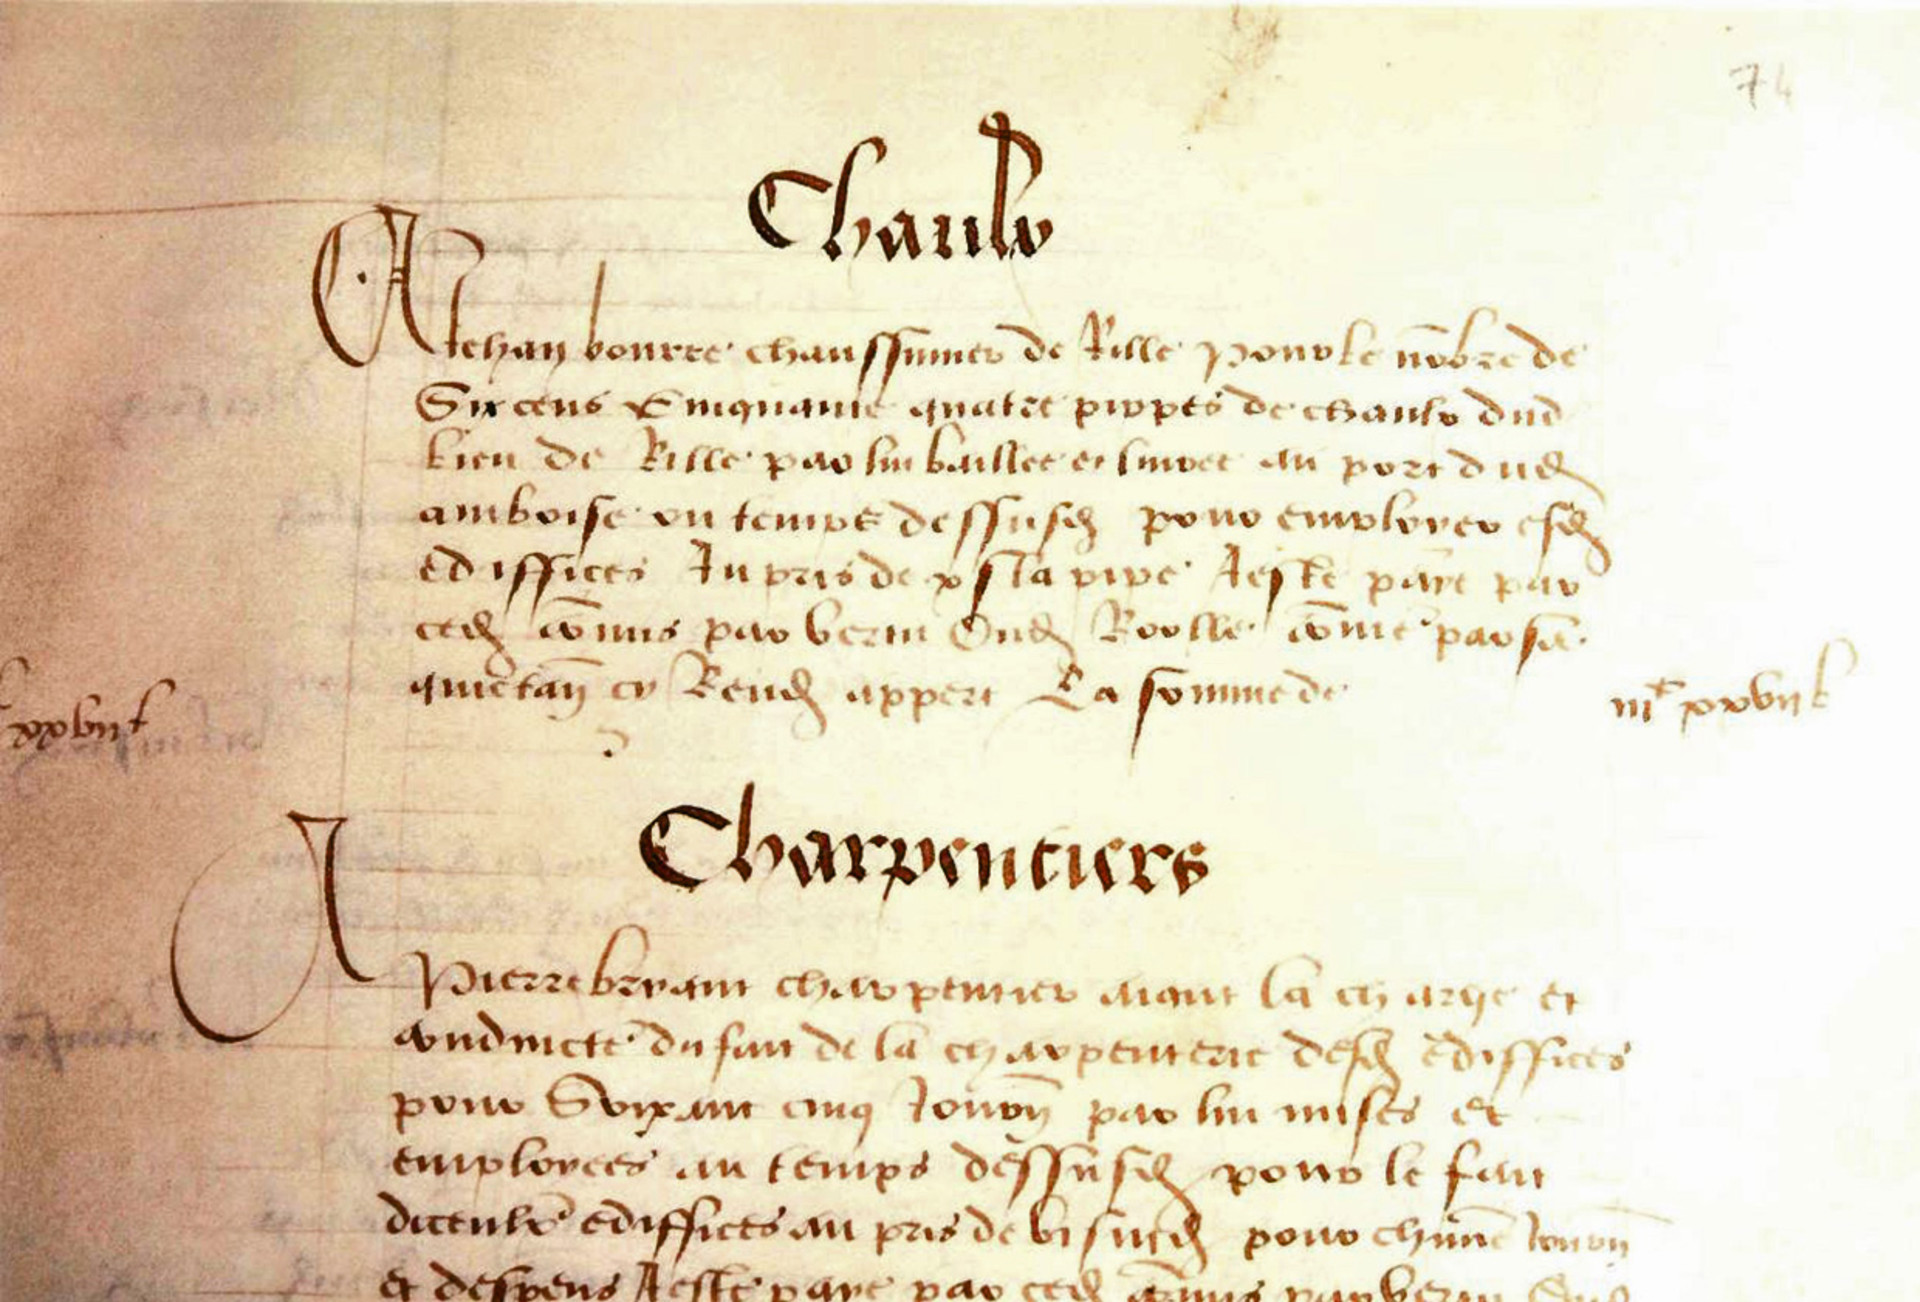 74
Chaulx
A Jehan bourre chaussumier de Rille pour le nōbre de
Six cens Cinquante quatre pippes de chaulx dud
lieu de Rille par lui baillee et livree au port dud
amboise ou temps dessusd pour employer esd
ediffices Au pris de x s la pipe A este paye par
ced cōmis par vertu dud Roolle cōme par sa
quictan cy Rend appert La somme de
iiiᶜ xxvii l
xxvii l
Charpentiers
A
Pierre bryant charpentier aiant la charge et
conduicte du fait de la charpenterie desd ediffices
pour Soixante cinq Journ par lui mises et
employees au temps dessusd pour le fait
diceulx ediffices au pris de vi s pour chūne Journ
et despens A este paye par ced cōmis par vertu dud